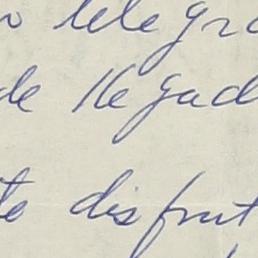 telegra
de llegad
te disfrut